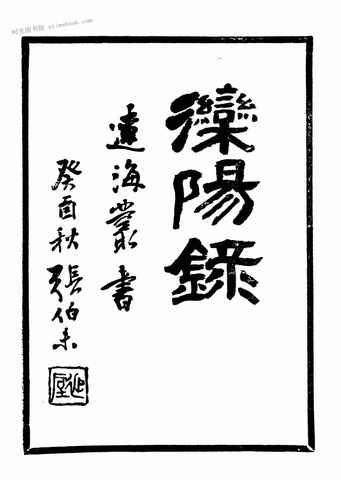 时光图书馆 etimebook.com
灤陽錄
遼海叢書
癸酉秋 張伯未